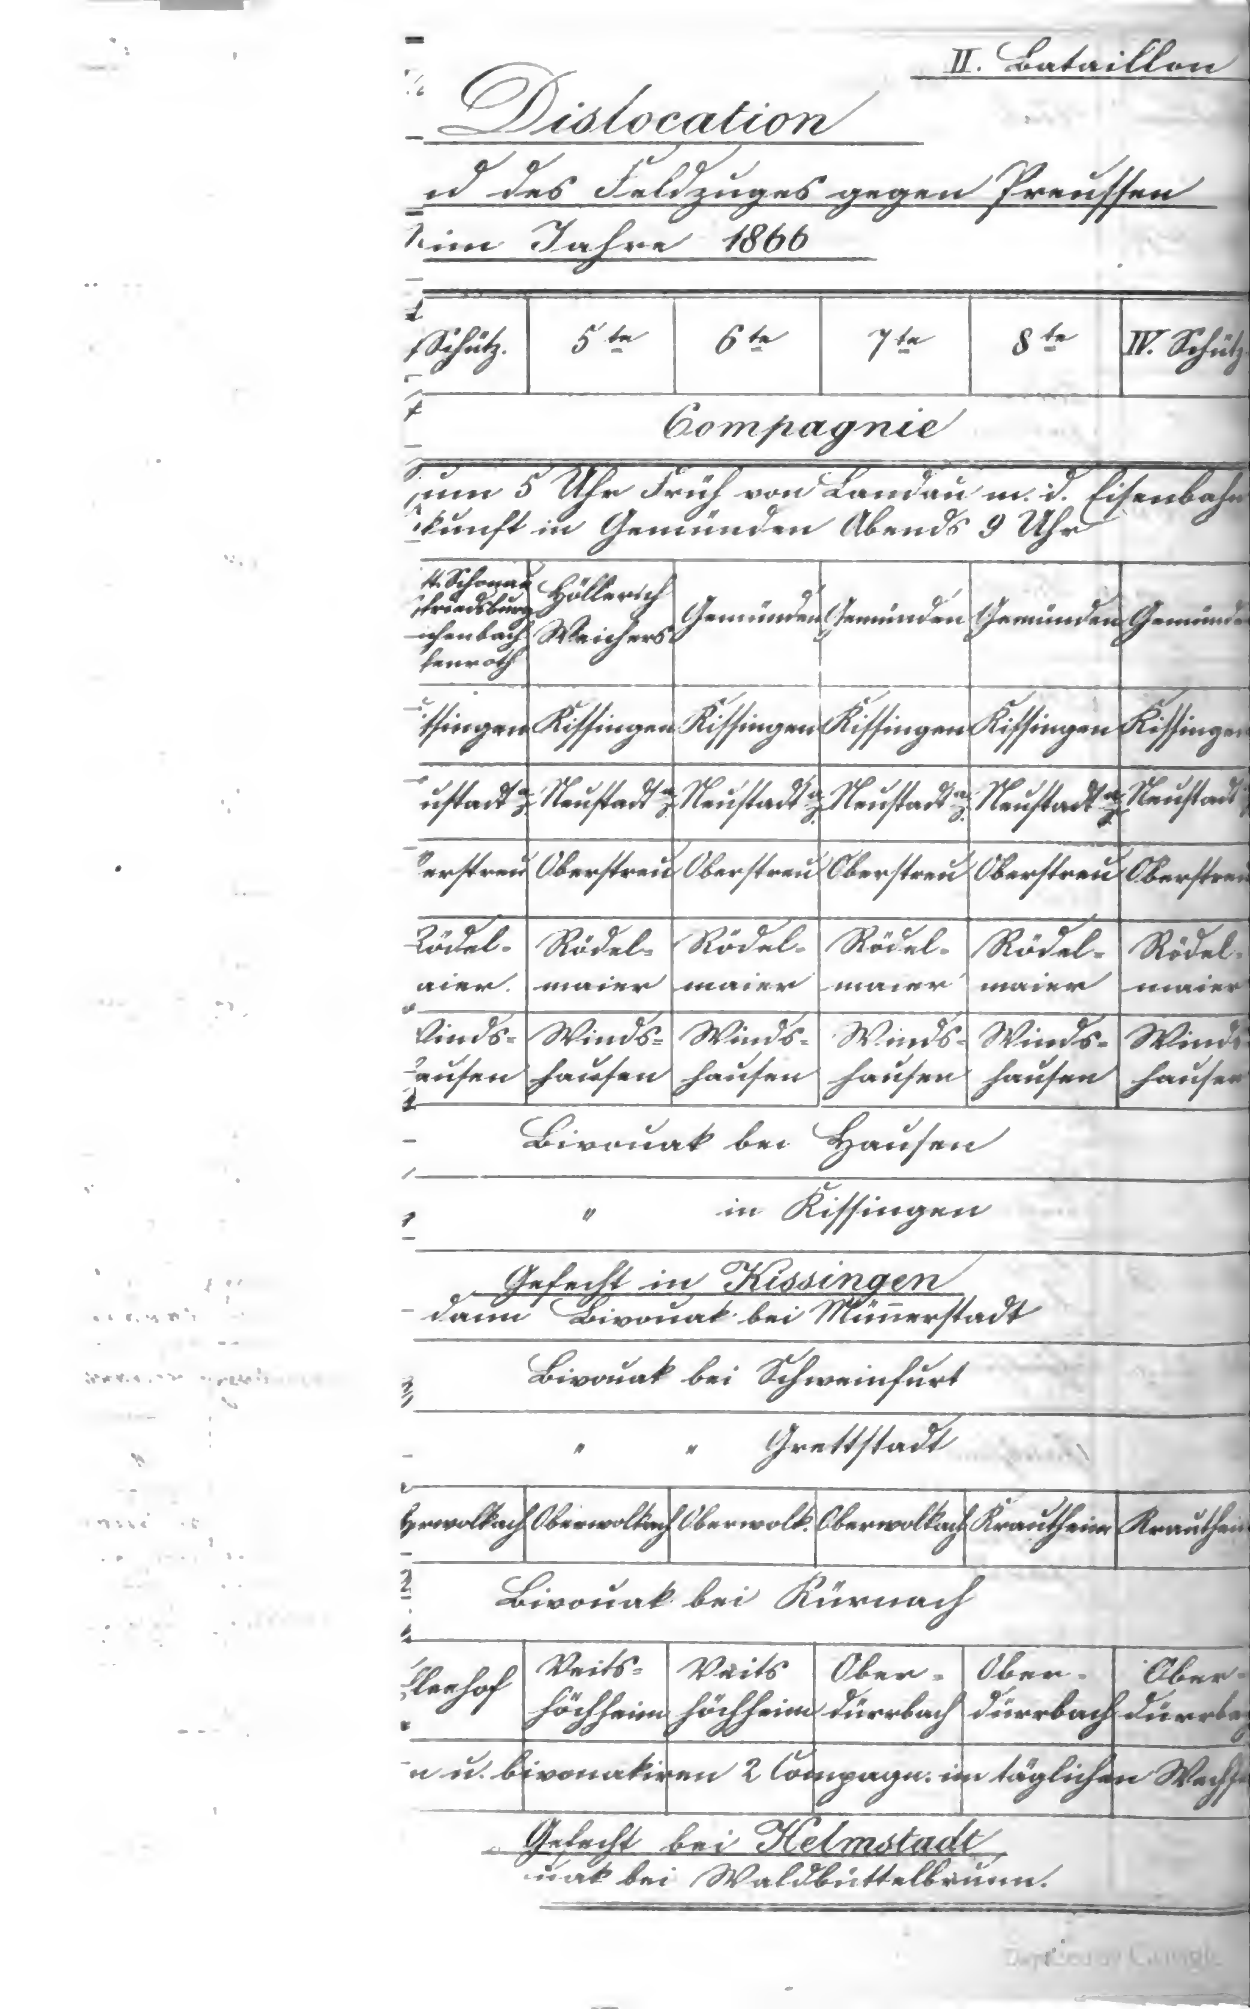 II. Bataillon
Dislocation
nd des Feldzuges gegen Preussen
im Jahre 1866
Schütz. 5te 6te 7te 8te IV. Schütz
Compagnie
um 5 Uhr Früh von Landau m. d. Eisenbahn
kunft in Gemünden Abends 9 Uhr
Schonau Höllerich
Weichers Gemünden Gemünden Gemünden Gemünde
ssingen Kissingen Kissingen Kissingen Kissingen Kissingen
ustadt a/S. Neustadt a/S. Neustadt a/S. Neustadt a/S. Neustadt a/S. Neustadt
erstreu Oberstreu Oberstreu Oberstreu Oberstreu Oberstreu
Rödel- Rödel- Rödel- Rödel- Rödel- Rödel-
aier. maier maier maier maier maier
Winds- Winds- Winds- Winds- Winds- Winds-
ausen hausen hausen hausen hausen hausen
Bivouak bei Hausen
" in Kissingen
Gefecht in Kissingen
dann Bivouak bei Münnerstadt
Bivouak bei Schweinfurt
" " Grettstadt
erwolkach Oberwolkach Oberwolk. Oberwolkach Krautheim Krautheim
Bivouak bei Kürnach
Veits- Veits Ober- Ober- Ober-
höchheim höchheim dürrbach dürrbach dürrba
n u. bivouakiren 2 Compagn. im täglichen Wechse
Gefecht bei Helmstadt,
uak bei Waldbüttelbrunn.
Digitized by Google